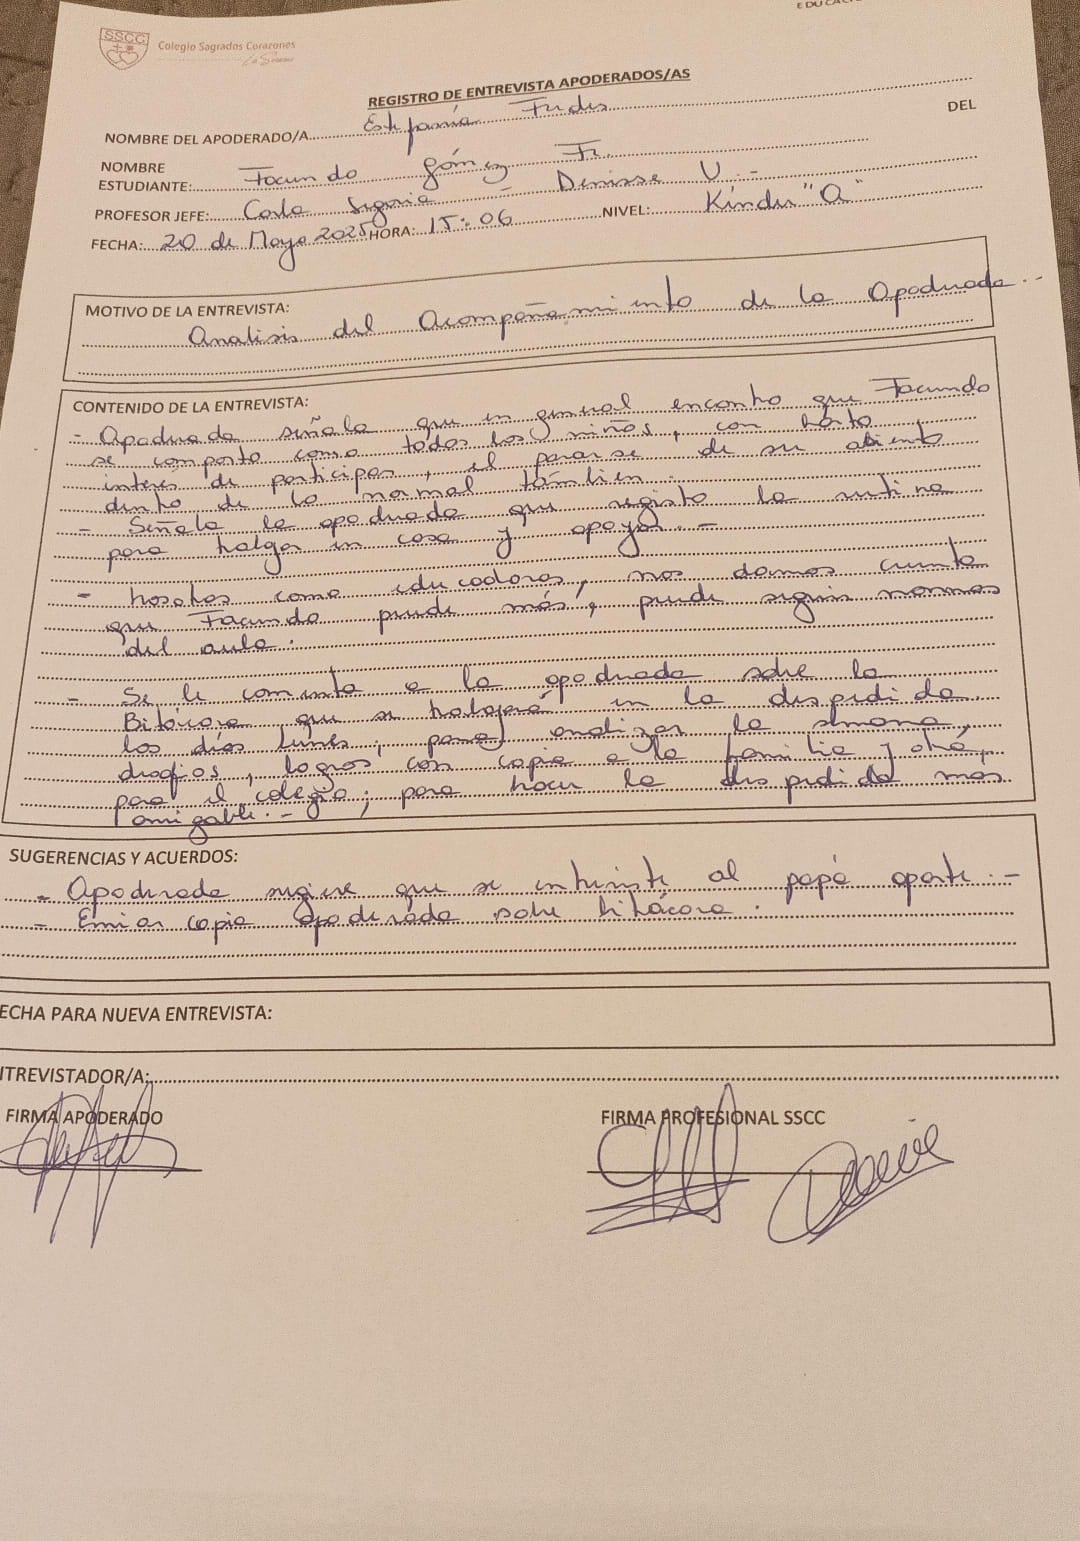 SSCC
Colegio Sagrados Corazones
La Serena
REGISTRO DE ENTREVISTA APODERADOS/AS
NOMBRE DEL APODERADO/A Estefanía
DEL
NOMBRE
ESTUDIANTE: Facundo Gómez F.
PROFESOR JEFE: Carla Segovia - Denisse U.-
FECHA: 20 de Mayo 2025 HORA: 15:06 NIVEL: Kinder "A"
MOTIVO DE LA ENTREVISTA:
Analisis del Acompañamiento de la Apoderada.-
CONTENIDO DE LA ENTREVISTA:
- Apoderada señala que en general encontro que Facundo
se comporto como todos los niños, con harto
interes de participar, el pararse de su asiento
dentro de lo normal también.
- Señala la apoderada que registo la rutina
para trabajar en casa y apoyar.-
- Nosotras como educadoras, nos damos cuenta
que Facundo puede más, puede seguir normas
del aula.
- Se le comenta a la apoderada sobre la
Bitácora que se trabajará en la despedida
los días lunes, para analizar la semana,
desafios, logros con copia a la familia y otra,
para el colegio; para hacer la despedida mas
amigable.-
SUGERENCIAS Y ACUERDOS:
- Apoderada sugiere que se entreviste al papá aparte.-
- Enviar copia apoderada sobre bitácora.
ECHA PARA NUEVA ENTREVISTA:
ITREVISTADOR/A:
FIRMA APODERADO
FIRMA PROFESIONAL SSCC